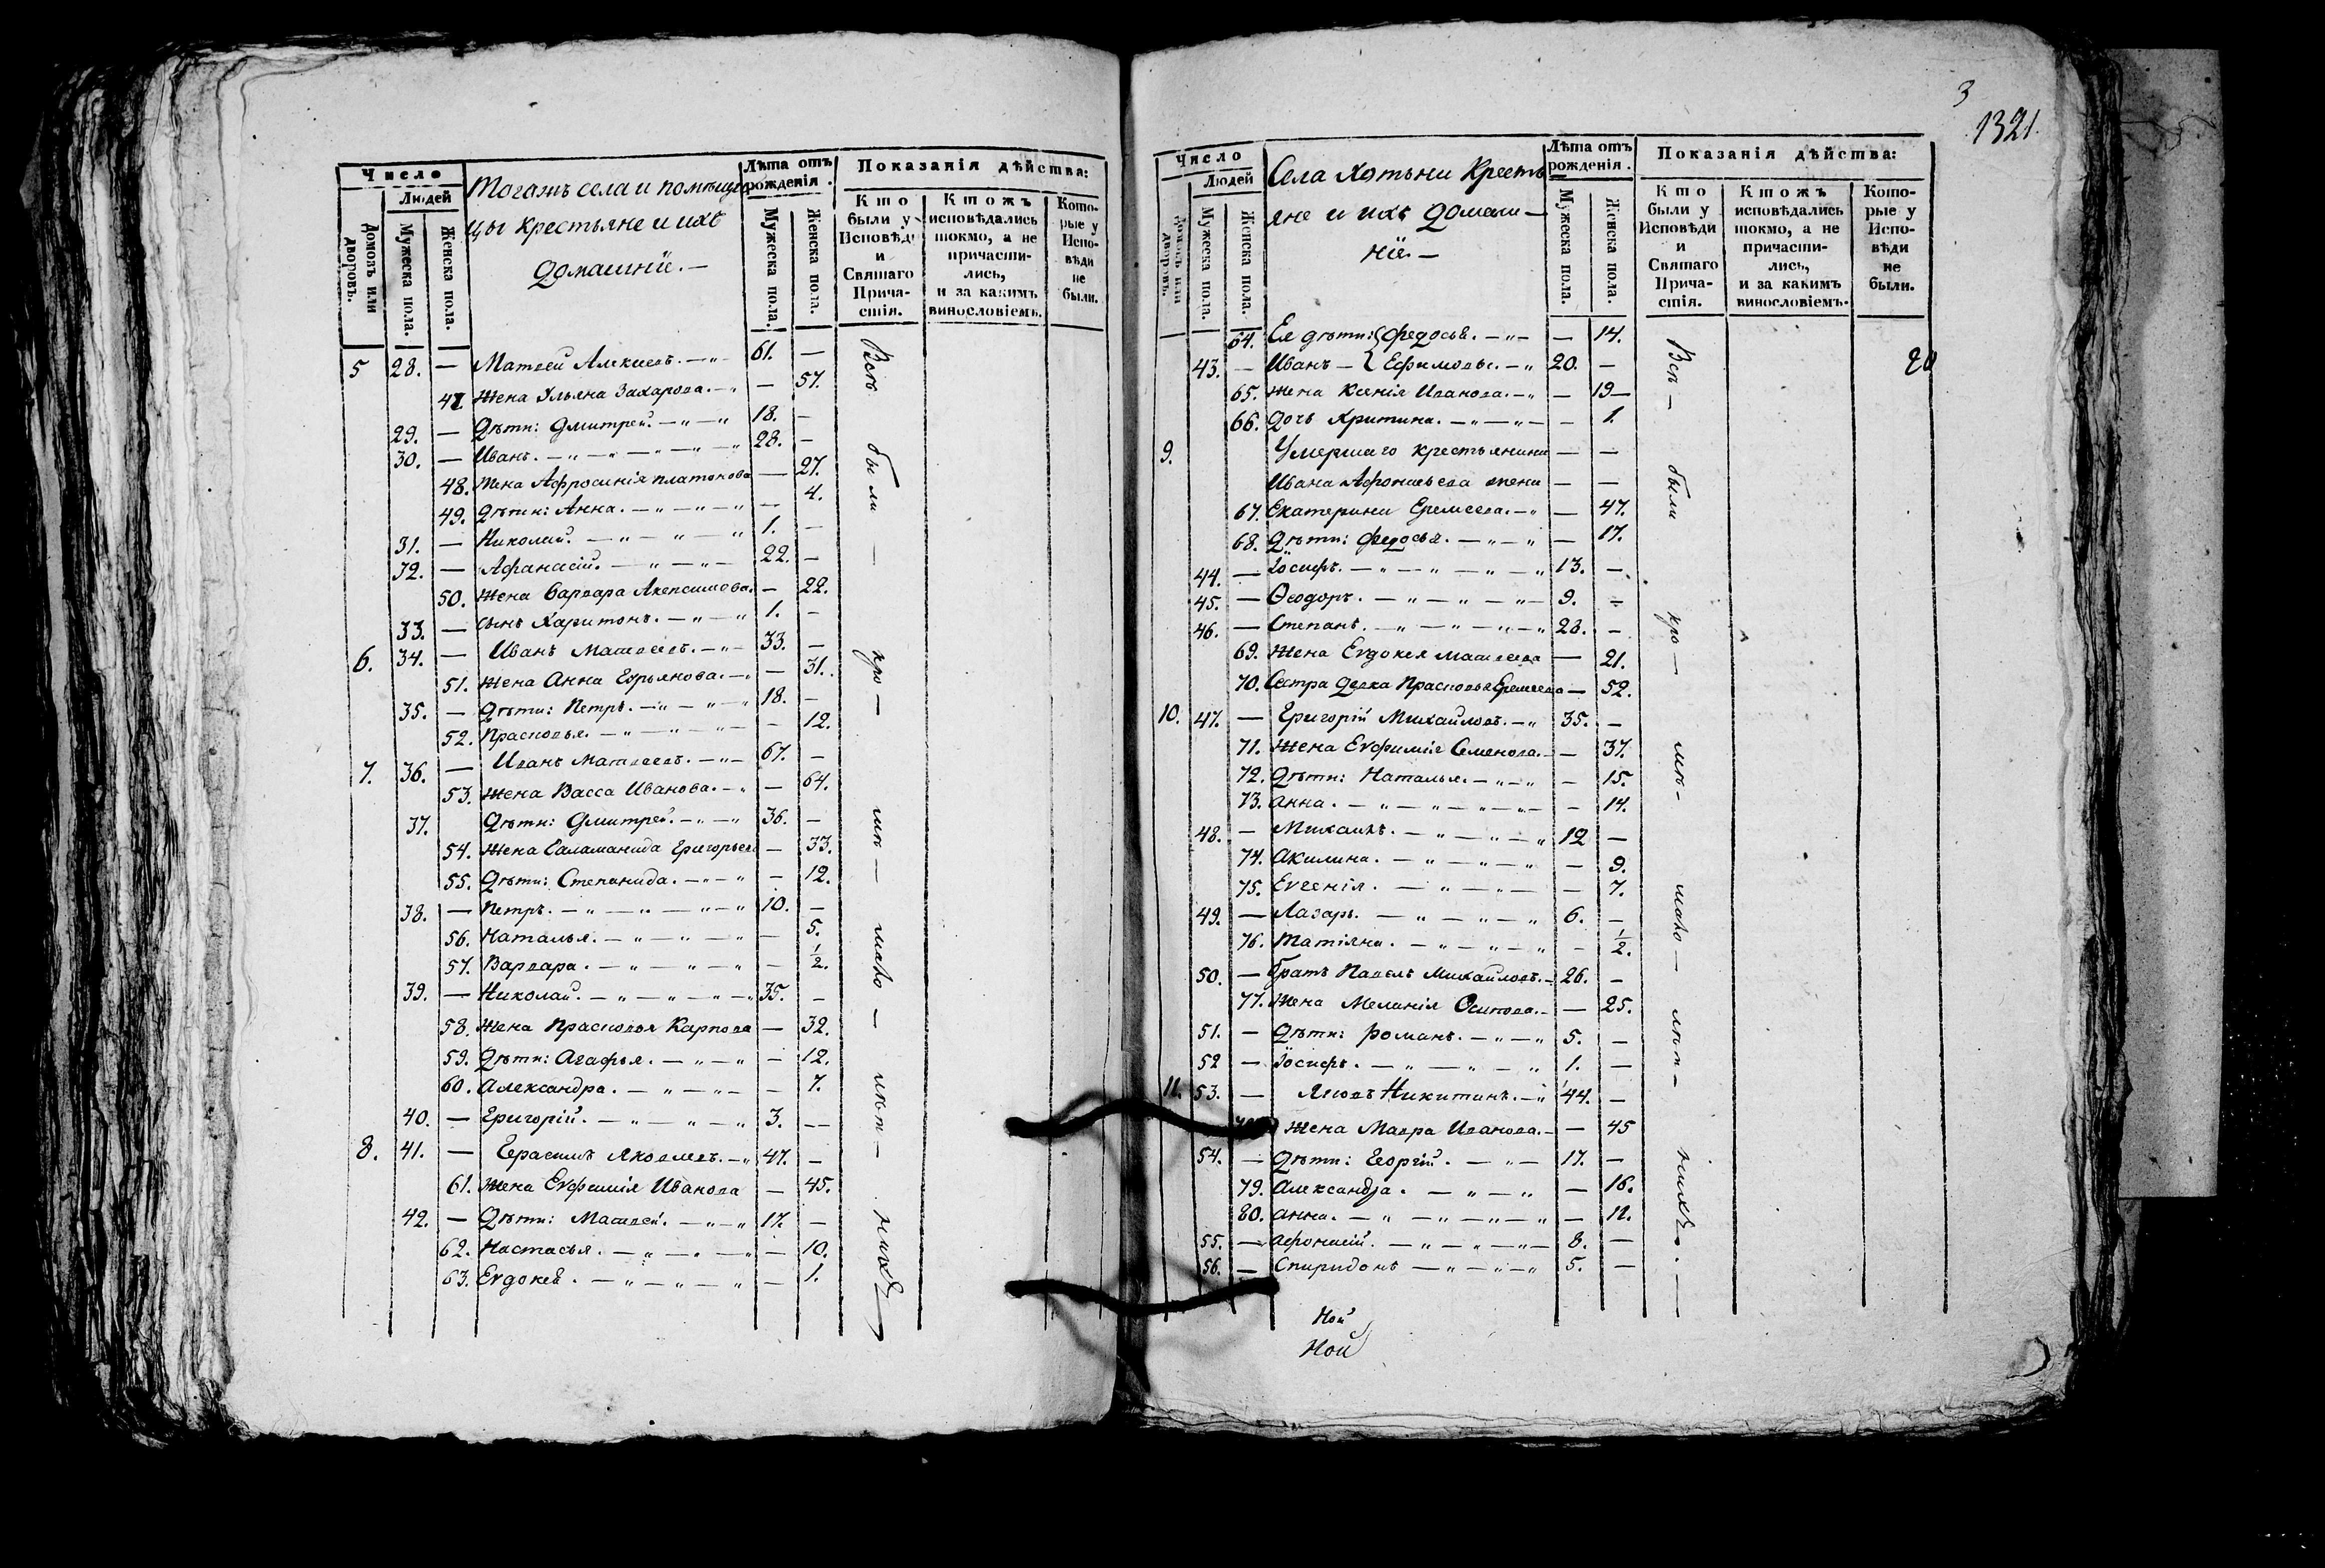 Число
Людей
Домовъ или дворовъ.
Мужеска пола.
Женска пола.
Тогажъ села и помѣщи
цы крестьяне и ихъ
домашніи. —
Лѣта отъ рожденія.
Мужеска пола.
Женска пола.
Показанія дѣйства:
Кто были у Исповѣди и Святаго Причастія.
Ктожъ исповѣдались токмо, а не причастились, и за какимъ винословіемъ.
Которые у Исповѣди не были.
5 28. — Матвей Алексеевъ. — „ — 61. —
47. Жена Ульяна Захарова. — „ — 57.
29. — Дѣти: Дмитрей. — „ — „ 18. —
30. — Иванъ. — „ — „ — „ — „ 28. —
48. Жена Афросинія Платонова — 27.
49. Дѣти: Анна. — „ — „ — „ — 4.
31. — Николай. — „ — „ — „ 1. —
32. — Афанасій. — „ — „ — 22. —
50. Жена Варвара Акепсимова. — 22.
33. — Сынъ Харитонъ. — „ — „ 1. —
6. 34. — Иванъ Матвеевъ. — „ — 33. —
51. Жена Анна Гурьянова. — „ — 31.
35. — Дѣти: Петръ. — „ — „ — „ 18. —
52. Прасковья. — „ — „ — „ — — 12.
7. 36. — Иванъ Матвеевъ. — „ — 67. —
53. Жена Васса Иванова. — „ — 64.
37. Дѣти: Дмитрей. — „ — „ 36. —
54. Жена Саламанида Григорьева — 33.
55. Дѣти: Степанида. — „ — „ — 12.
38. — Петръ. — „ — „ — „ — „ 10. —
56. Наталья. — „ — „ — „ — 5.
57. Варвара. — „ — „ — „ — 1/2.
39. — Николай. — „ — „ — „ — „ 35. —
58. Жена Прасковья Карпова — 32.
59. Дѣти: Агафья. — „ — „ — 12.
60. Александра. — „ — „ — — 7.
40. — Григорій. — „ — „ — „ 3. —
8. 41. — Герасимъ Яковлевъ. — „ 47. —
61. Жена Евфимія Иванова — 45.
42. — Дѣти: Матвей. — „ — „ 17. —
62. Настасья. — „ — „ — „ — 10.
63. Евдокея. — „ — „ — „ — 1.
Всѣ — были — кро — мѣ — мало — лѣт — нихъ
3
1321.
Число
Людей
Домовъ или дворовъ.
Мужеска пола.
Женска пола.
Села Хотыни Кресть
яне и ихъ домаш —
ніе. —
Лѣта отъ рожденія.
Мужеска пола.
Женска пола.
Показанія дѣйства:
Кто были у Исповѣди и Святаго Причастія.
Ктожъ исповѣдались токмо, а не причастились, и за какимъ винословіемъ.
Которые у Исповѣди не были.
20
64. Ее дѣти: Федосья. — „ — — 14.
43. — Иванъ — Ефимовы. — „ 20. —
65. Жена Ксенія Иванова. — „ — 19 —
66. Дочь Хритина. — „ — „ — — 1.
9. Умершаго крестьянина — —
Ивана Афонасьева жена — —
67. Екатерина Еремеева. — „ — 47.
68. Дѣти: Федосья. — „ — „ — 17.
44. — Іосифъ. — „ — „ — „ — „ 13. —
45. — Ѳеодоръ. — „ — „ — „ — 9. —
46. — Степанъ. — „ — „ — „ — „ 28. —
69. Жена Евдокея Матвеева — 21.
70. Сестра девка Прасковья Еремеева — 52.
10. 47. — Григорій Михайловъ. — „ 35. —
71. Жена Евфимія Семенова. — — 37.
72. Дѣти: Наталья. — „ — „ — 15.
73. Анна. — „ — „ — „ — „ — — 14.
48. — Михаилъ. — „ — „ — „ 12 —
74. Акилина. — „ — „ — „ — 9.
75. Евгенія. — „ — „ — — 7.
49. — Лазарь. — „ — „ — „ 6. —
76. Татіяна. — „ — „ — „ — 1/2.
50. — Братъ Павелъ Михайловъ. — 26. —
77. Жена Меланія Осипова. — — 25.
51. — Дѣти: Романъ. — „ — „ 5. —
52 — Іосифъ. — „ — „ — „ 1. —
11. 53. — Яковъ Никитинъ. — „ 44. —
Жена Мавра Иванова. — — 45
54. — Дѣти: Георгій. — „ — 17. —
79. Александра. — „ — „ — 16.
80. Анна. — „ — „ — „ — „ — 11.
55. — Афонасій. — „ — „ — „ — 8. —
56. — Спиридонъ — „ — „ — „ 5. —
Всѣ — были кро — мѣ — мало — лѣт — нихъ. —
Ной
Ной